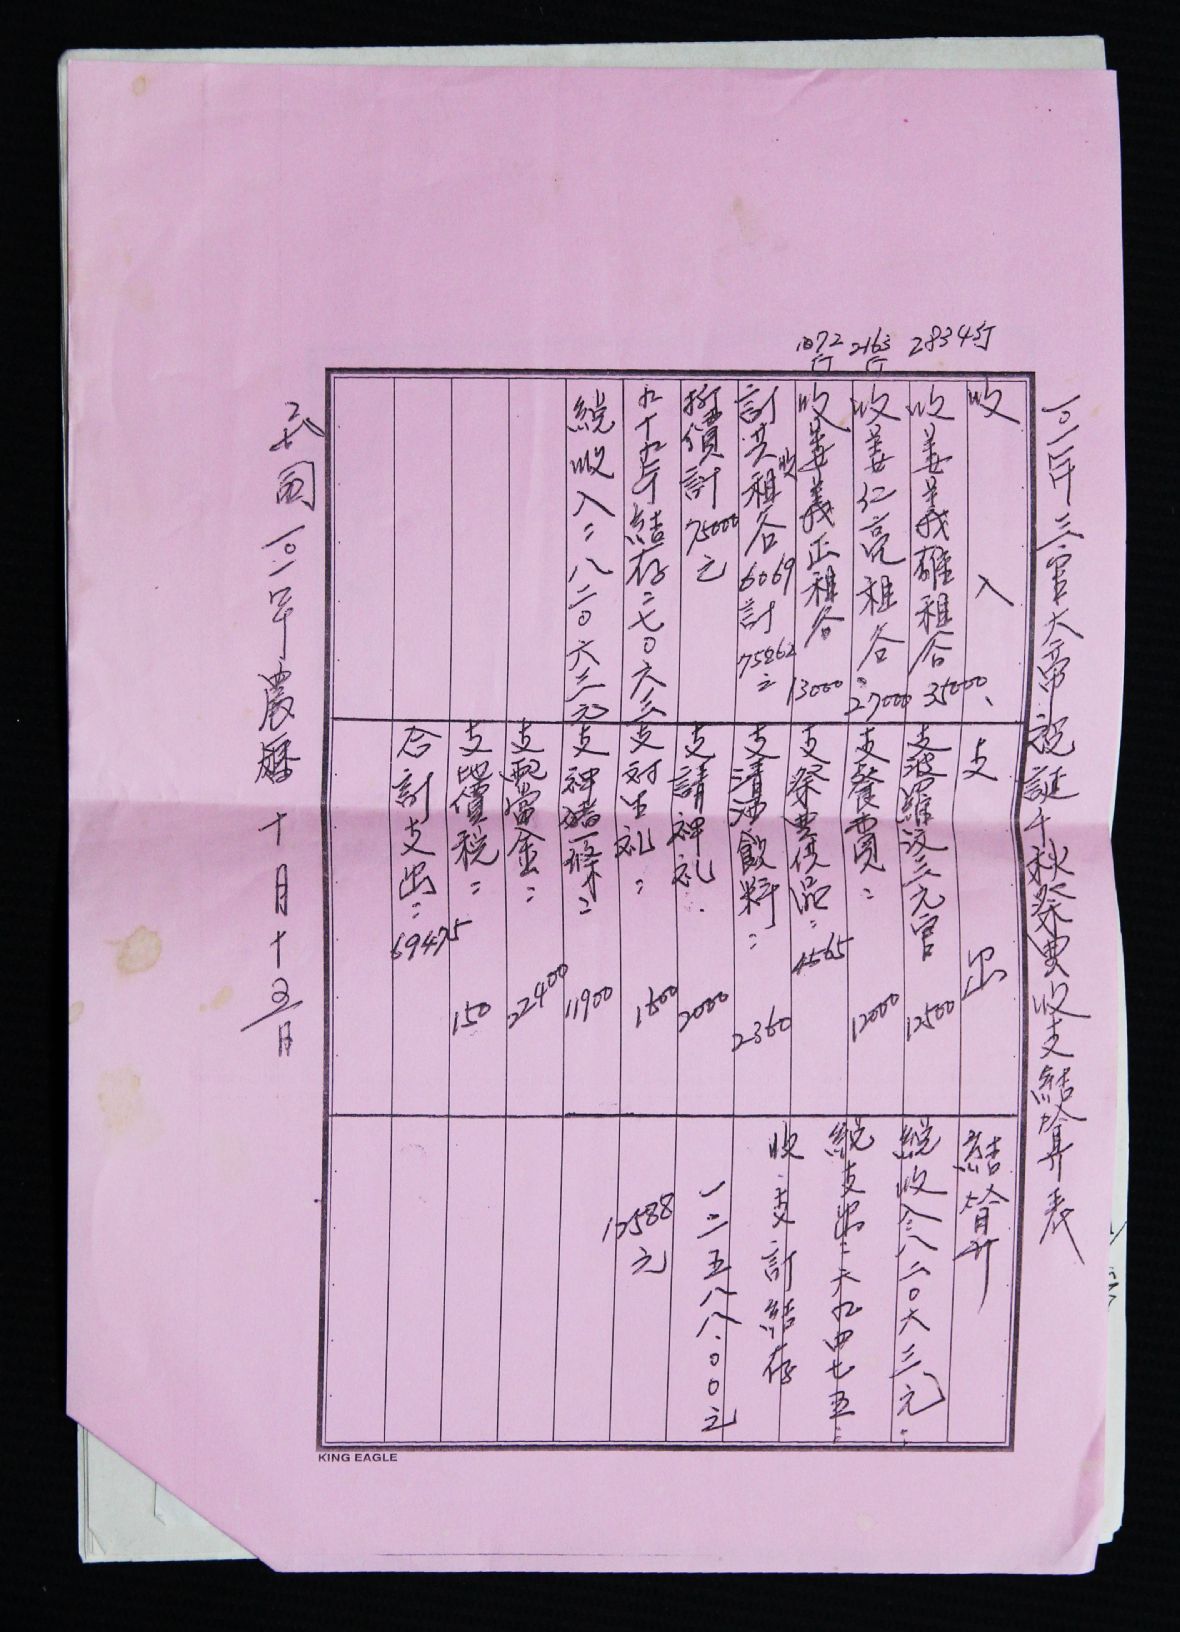 一〇一年三官大帝祝誕千秋祭典收支結算表
收入
2834斤
收姜義雄租谷 35000、
2163斤
收姜仁亮租谷：27000
1072斤
收姜義正租谷 13000
計共收租谷6069計75862元
折價計75000元
九十九年結存：七〇六三
總收入：八二〇六三元
支出
支波羅汶三元宮 12500
支餐費：12000
支祭典供品：4565
支清酒飲料：2360
支請神礼：2000
支对生礼：1600
支神豬一條：11900
支配當金：22400
支地價税：150
合計支出：69475
結算
總收入：八二〇六三元：
總支出：六九四七五：
收支計結存
一二五八八.〇〇元
12588元
民國一〇一年農曆十月十五日
KING EAGLE